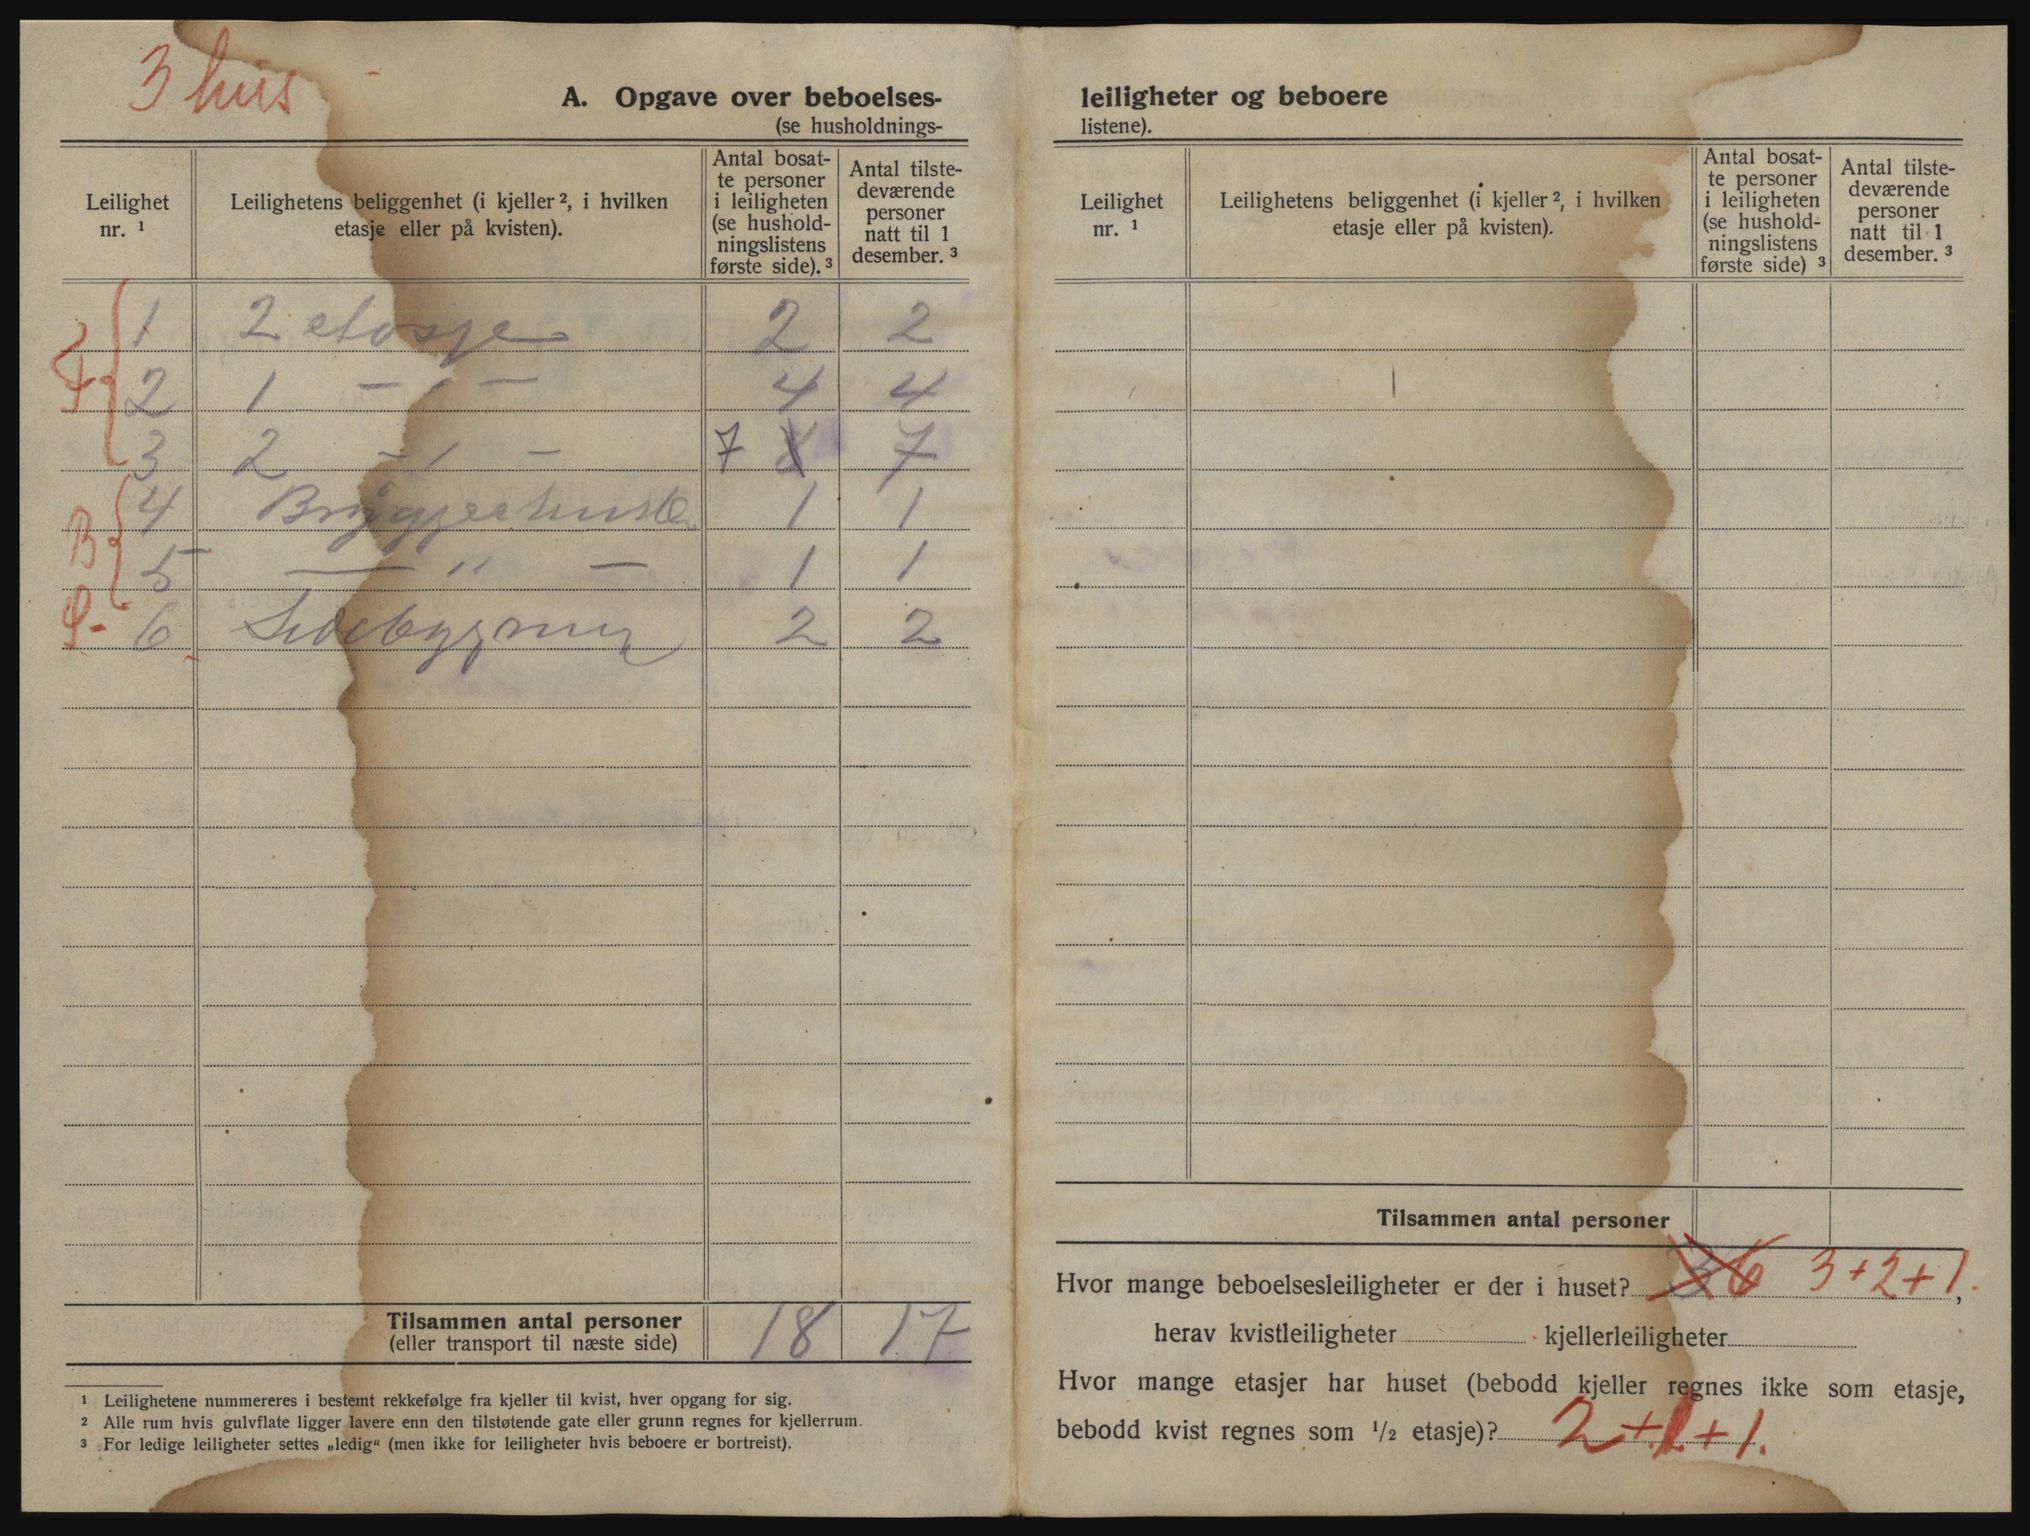 3 hus
A. Opgave over beboelses-
(se husholdnings-
Leilighet nr. ¹
Leilighetens beliggenhet (i kjeller ², i hvilken etasje eller på kvisten).
Antal bosatte personer i leiligheten (se husholdningslistens første side). ³
Antal tilstedeværende personer natt til 1 desember. ³
F { 1 2 etasje 2 2
2 1 — " — 4 4
3 2 — " — 7 8 7
B { 4 Bryggerhuset 1 1
5 — " — 1 1
S. 6 Sidebygning 2 2
Tilsammen antal personer 18 17
(eller transport til næste side)
¹ Leilighetene nummereres i bestemt rekkefølge fra kjeller til kvist, hver opgang for sig.
² Alle rum hvis gulvflate ligger lavere enn den tilstøtende gate eller grunn regnes for kjellerrum.
³ For ledige leiligheter settes „ledig“ (men ikke for leiligheter hvis beboere er bortreist).
leiligheter og beboere
listene).
Leilighet nr. ¹
Leilighetens beliggenhet (i kjeller ², i hvilken etasje eller på kvisten).
Antal bosatte personer i leiligheten (se husholdningslistens første side) ³
Antal tilstedeværende personer natt til 1 desember. ³
Tilsammen antal personer
Hvor mange beboelsesleiligheter er der i huset? 6 3+2+1.,
herav kvistleiligheter kjellerleiligheter
Hvor mange etasjer har huset (bebodd kjeller regnes ikke som etasje,
bebodd kvist regnes som ¹/₂ etasje)? 2+1+1.